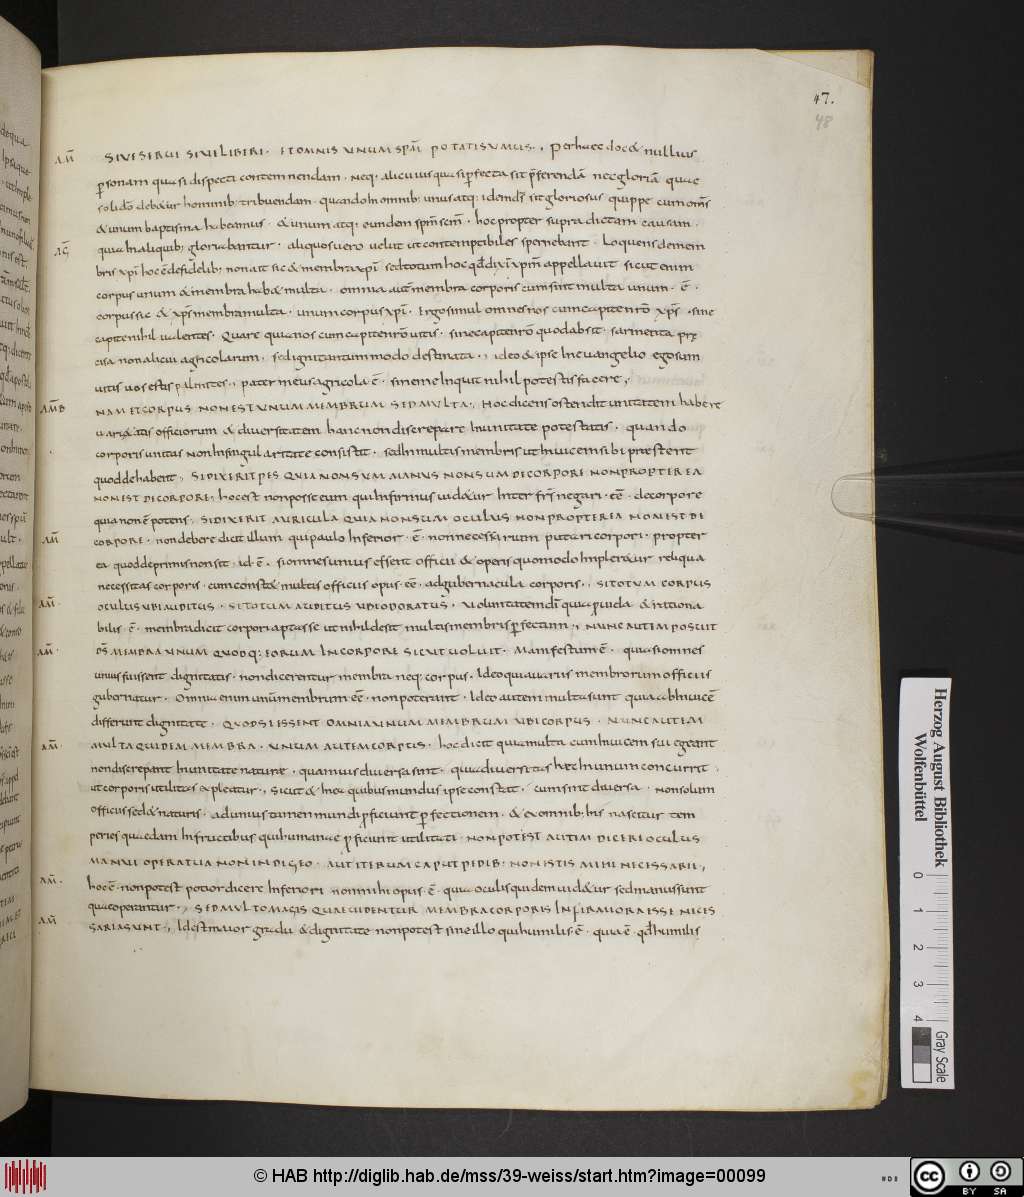 47.
48
AM̄ SIVE SERVI SIVE LIBERI · ET OMNIS UNUM SPM̄ POTATI SUMUS ·, Per haec doc& nullius
personam quasi dispecti contemnendam · Neq· alicuius quasi perfecta sit p̄ferendā nec gloriā quae
solidō deb&ur hominib; tribuendam · quando In omnib; unus atq; idem ds̄ sit gloriosus quippe cum om̄s
& unum baptisma habeamus · & unum atq; eundem spm̄ scm̄ · hoc propter supradictam causam ·
quia In aliquib; gloriabantur · aliquos uero uelut ut contemptibiles spernebant · Loquens de mem
AG̅ bris xp̄i hoc ē de fidelib; non ait sic & membra xp̄i sed totum hoc qd̄ dixit xp̄m appellauit sicut enim
corpus unum & membra hab& multa · omnia aut̄ membra corporis cum sint multa unum · ē ·
corpus sic & xp̄s membra multa · unum corpus xp̄i · Ergo simul omnes nos cum capite nr̄o xp̄s · sine
capite nihil ualentes · Quare quia nos cum capite nr̄o uitis · sine capite nr̄o quod absit · sarmenta prę
cisa non alicui agricolarum · sed igni tantummodo destinata ·, ideo & ipse In euangelio ego sum
uitis uos estis palmites ·, pater meus agricola ē · sine me Inquit nihil potestis facere ·,
AMB NAM ET CORPUS NON EST UNUM MEMBRUM SED MULTA ·, Hoc dicens ostendit unitatem habere
uari&atis officiorum & diuersitatem hanc non discrepare In unitate potestatis · quando
corporis unitas non In singularitate consistit · sed In multis membris ut Inuicem sibi praestent
quod debent ·, SI DIXERIT PES QUIA NON SUM MANUS NON SUM DE CORPORE NON PROPTEREA
NON EST DE CORPORE ·, hoc est non posse eum qui Infirmus uid&ur Inter fr̄s negari · eē · de corpore
quia non ē potens ·, SI DIXERIT AURICULA QUIA NON SUM OCULUS NON PROPTEREA NON EST DE
AM̄ CORPORE · non debere dicit illum qui paulo Inferior · ē · non necessarium putari corpori · propter
ea quod de primis non sit · id · ē · si omnes unius essent officii & operis quomodo Impler&ur reliqua
necessitas corporis · cum const& multis officiis opus · eē · ad gubernacula corporis ·, SI TOTUM CORPUS
AM̄ OCULUS UBI AUDITUS · SI TOTUM AUDITUS UBI ODORATUS · Uoluntatem dī quia p̄uida & rationa
bilis · ē · membra dicit corpori aptasse ut nihil desit multis membris perfectum ·, NUNC AUTEM POSUIT
AM̄ DS̄ MEMBRA UNUM QUODQ; EORUM IN CORPORE SICUT UOLUIT · Manifestum ē · quia si omnes
unius fuissent dignitatis · non dicerentur membra neq; corpus · Ideo qua uariis membrorum officiis
gubernatur · Omnia enim unū membrum eē · non poterunt · Ideo autem multa sunt quia ab Inuicē
differunt dignitate · QUOD SI ESSENT OMNIA UNUM MEMBRUM UBI CORPUS · NUNC AUTEM
AM̄ MULTA QUIDEM MEMBRA · UNUM AUTEM CORPUS · hoc dicit quia multa cum Inuicem sui egeant
non discrepant In unitate naturae · quamuis diuersa sint · quia diuersitas haec In unum concurrit ·
ut corporis utilitas expleatur ·, Sicut & In ea quibus mundus ipse constat · cum sint diuersa · non solum
officiis sed & naturis · ad unius tamen mundi proficiunt perfectionem · & ex omnib; his nascitur tem
peries quaedam In fructibus qui humanae proficiunt utilitati · NON POTEST AUTEM DICERE OCULUS
MANUI OPERA TUA NON INDIGEO · AUT ITERUM CAPUT PEDIB; NON ESTIS MIHI NECESSARII ·,
AM̄ · hoc ē · non potest potior dicere Inferiori non mihi opus · ē · quia oculis quidem uid&ur sed manus sunt
quae operantur ·, SED MULTO MAGIS QUAE UIDENTUR MEMBRA CORPORIS INFIRMIORA ESSE NECES
AM̄ SARIA SUNT ·, Id est maior gradu & dignitate non potest sine illo qui humilis · ē · quia ē · qd̄ humilis
Herzog August Bibliothek
Wolfenbüttel
0 1 2 3 4
Gray Scale
© HAB http://diglib.hab.de/mss/39-weiss/start.htm?image=00099
cc BY SA